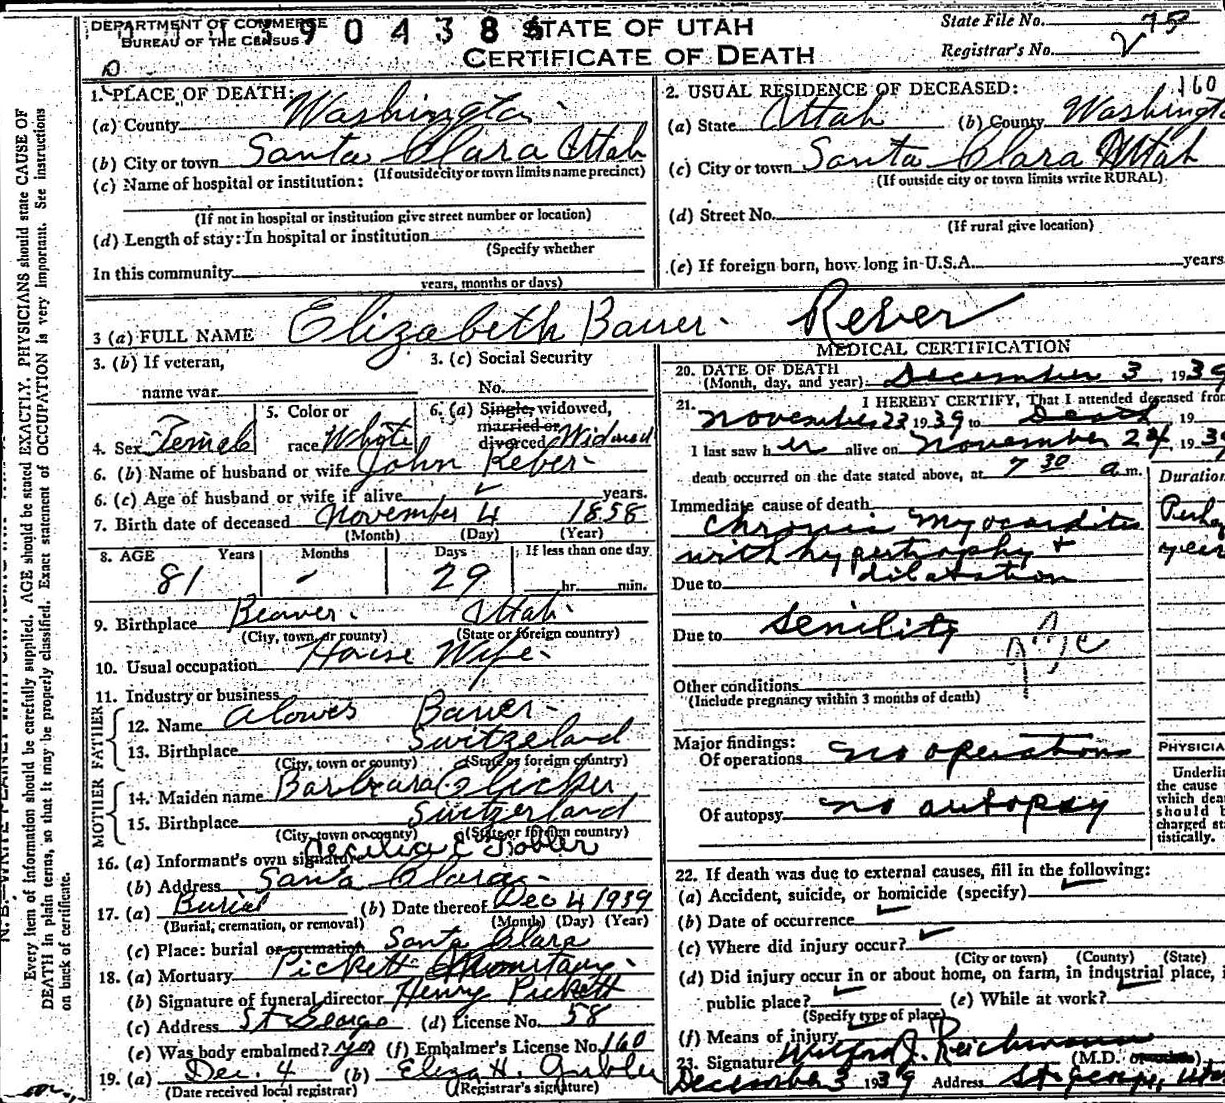 DEPARTMENT OF COMMERCE
BUREAU OF THE CENSUS
3 9 0 4 3 8
STATE OF UTAH
CERTIFICATE OF DEATH
State File No. 75
Registrar's No. V
1. PLACE OF DEATH:
(a) County Washington
(b) City or town Santa Clara Utah
(If outside city or town limits name precinct)
(c) Name of hospital or institution:
(If not in hospital or institution give street number or location)
(d) Length of stay: In hospital or institution
(Specify whether
In this community
years, months or days)
2. USUAL RESIDENCE OF DECEASED: 160
(a) State Utah (b) County Washingt
(c) City or town Santa Clara Utah
(If outside city or town limits write RURAL)
(d) Street No.
(If rural give location)
(e) If foreign born, how long in U.S.A. years
3 (a) FULL NAME Elizabeth Bauer Reber
3. (b) If veteran,
name war
3. (c) Social Security
No.
4. Sex Female
5. Color or
race Whyte
6. (a) Single, widowed,
married or
divorced Widowed
6. (b) Name of husband or wife John Reber
6. (c) Age of husband or wife if alive years.
7. Birth date of deceased November 4 1858
(Month) (Day) (Year)
8. AGE Years Months Days If less than one day
81 - 29 hr. min.
9. Birthplace Beaver Utah
(City, town or county) (State or foreign country)
10. Usual occupation House Wife
11. Industry or business
FATHER
12. Name Alowes Bauer
13. Birthplace Switzeland
(City, town or county) (State or foreign country)
MOTHER
14. Maiden name Barbara
15. Birthplace Switzerland
(City, town or county) (State or foreign country)
16. (a) Informant's own signature Cecilia E Tobler
(b) Address Santa Clara
17. (a) Burial (b) Date thereof Dec 4 1939
(Burial, cremation, or removal) (Month) (Day) (Year)
(c) Place: burial or cremation Santa Clara
18. (a) Mortuary Pickett
(b) Signature of funeral director Henry Pickett
(c) Address St George (d) License No. 58
(e) Was body embalmed? yes (f) Embalmer's License No. 160
19. (a) Dec. 4 (b) Eliza H. Gubler
(Date received local registrar) (Registrar's signature)
MEDICAL CERTIFICATION
20. DATE OF DEATH
(Month, day, and year) December 3, 1939
21. I HEREBY CERTIFY, That I attended deceased from
November 23 1939 to Death, 19
I last saw her alive on November 24, 193
death occurred on the date stated above, at 7 30 a m.
Duration
Immediate cause of death
chronic myocarditis
with hypertrophy +
Due to dilatation
Due to senility
Other conditions
(Include pregnancy within 3 months of death)
Major findings:
Of operations no operations
Of autopsy no autopsy
PHYSICIA
Underli
the cause
which dea
should b
charged sta
tistically.
22. If death was due to external causes, fill in the following:
(a) Accident, suicide, or homicide (specify)
(b) Date of occurrence
(c) Where did injury occur?
(City or town) (County) (State)
(d) Did injury occur in or about home, on farm, in industrial place, i
public place? (e) While at work?
(Specify type of place)
(f) Means of injury
23. Signature Wilford J. Reichmann (M.D. or other)
December 3 1939 Address St George, Utah
Every item of information should be carefully supplied. AGE should be stated EXACTLY. PHYSICIANS should state CAUSE OF
DEATH in plain terms, so that it may be properly classified. Exact statement of OCCUPATION is very important. See instructions
on back of certificate.